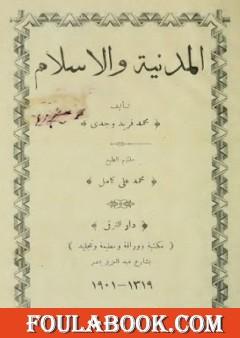 المدنية والاسلام
تأليف
﴿ محمد فريد وجدى ﴾
ملتزم الطبع
﴿ محمد علي كامل ﴾
﴿ دار الترقى ﴾
( مكتبة ووراقة ومطبعة وتجليد )
بشارع عبد العزيز بمصر
١٣١٩-١٩٠١
FOULABOOK.COM